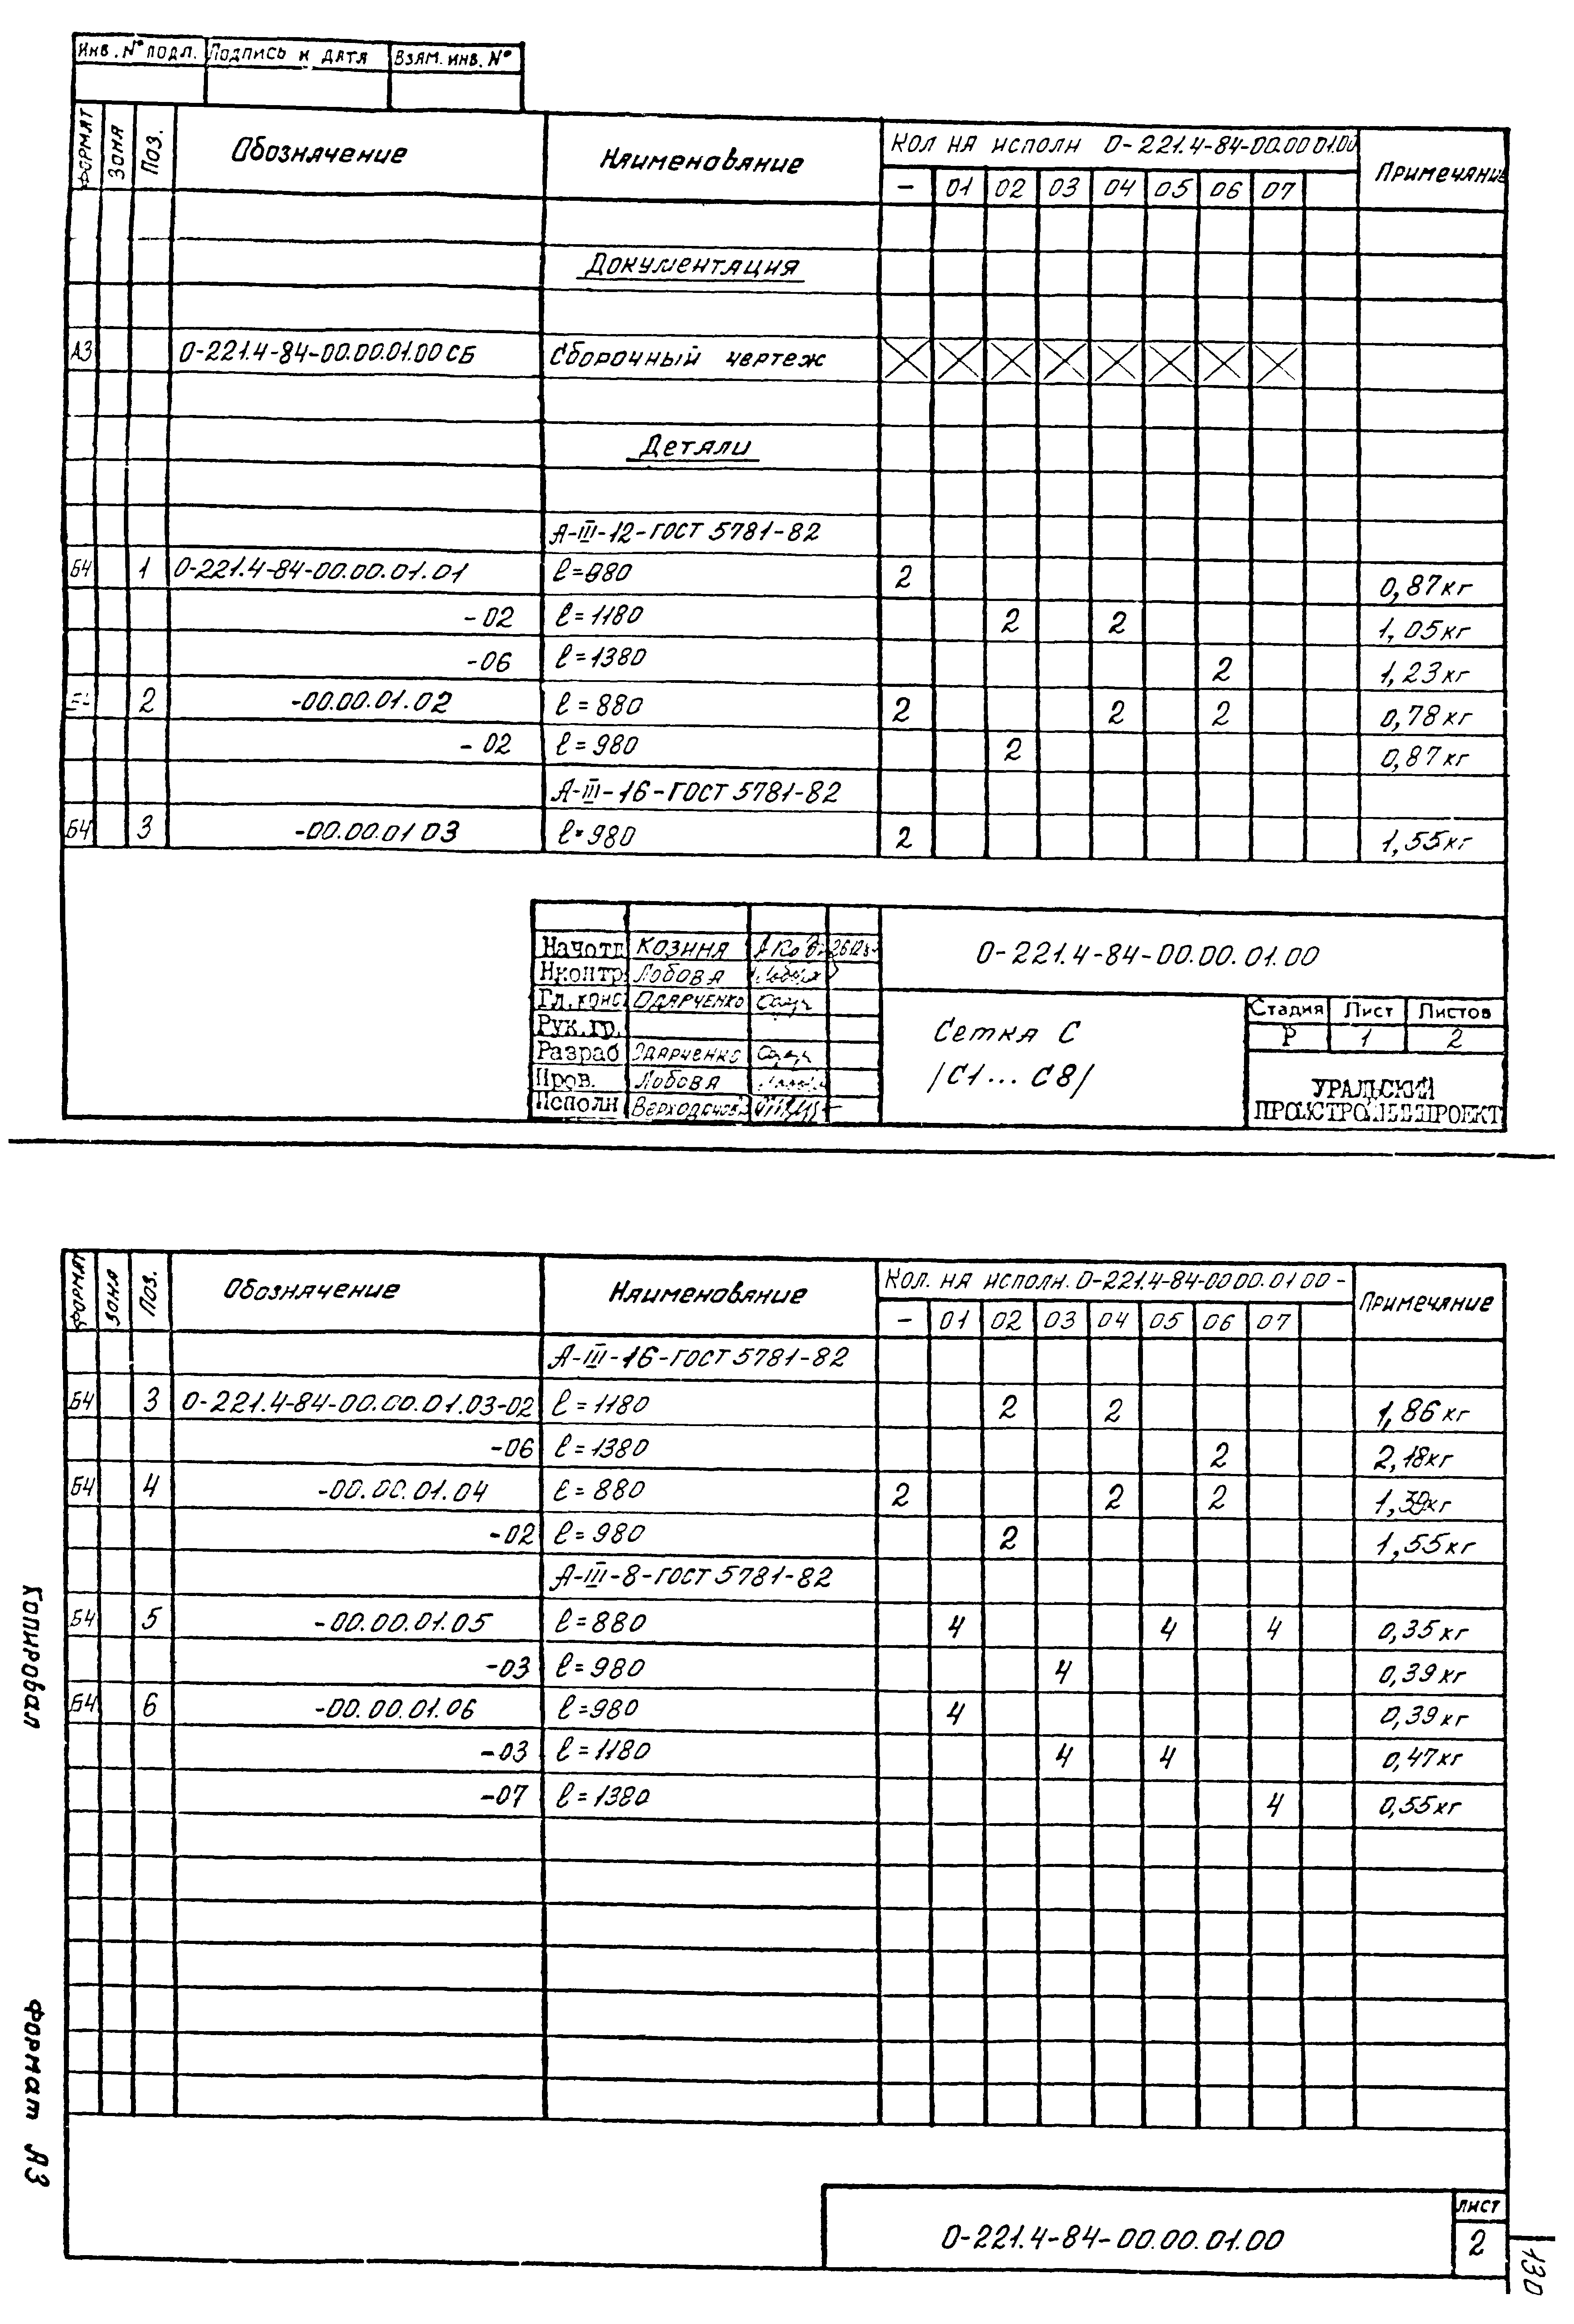 Инв. № подл. Подпись и дата Взам. инв. №
Формат Зона Поз. Обозначение Наименование Кол на исполн О-221.4-84-00.00 01.00 Примечание
- 01 02 03 04 05 06 07
Документация
А3 О-221.4-84-00.00.01.00 СБ Сборочный чертеж
Детали
А-III-12-ГОСТ 5781-82
Б4 1 О-221.4-84-00.00.01.01 ℓ=980 2 0,87кг
-02 ℓ=1180 2 2 1,05кг
-06 ℓ=1380 2 1,23кг
2 -00.00.01.02 ℓ=880 2 2 2 0,78кг
-02 ℓ=980 2 0,87кг
А-III-16-ГОСТ 5781-82
Б4 3 -00.00.01 03 ℓ=980 2 1,55кг
Начотд Козина
Нконтр. Лобова
Гл.конс. Одарченко
Рук.гр.
Разраб Одарченко
Пров. Лобова
Исполн
О-221.4-84-00.00.01.00
Сетка С
/С1...С8/
Стадия Лист Листов
Р 1 2
УРАЛЬСКИЙ
ПРОМСТРОЙНИИПРОЕКТ
Формат Зона Поз. Обозначение Наименование Кол. на исполн. О-221.4-84-00 00.01 00 - Примечание
- 01 02 03 04 05 06 07
А-III-16-ГОСТ 5781-82
Б4 3 О-221.4-84-00.00.01.03-02 ℓ=1180 2 2 1,86 кг
-06 ℓ=1380 2 2,18кг
Б4 4 -00.00.01.04 ℓ=880 2 2 2 1,39кг
-02 ℓ=980 2 1,55кг
А-III-8-ГОСТ 5781-82
Б4 5 -00.00.01.05 ℓ=880 4 4 4 0,35кг
-03 ℓ=980 4 0,39кг
Б4 6 -00.00.01.06 ℓ=980 4 0,39кг
-03 ℓ=1180 4 4 0,47кг
-07 ℓ=1380 4 0,55кг
О-221.4-84-00.00.01.00
Лист
2
Копировал
Формат А3
130